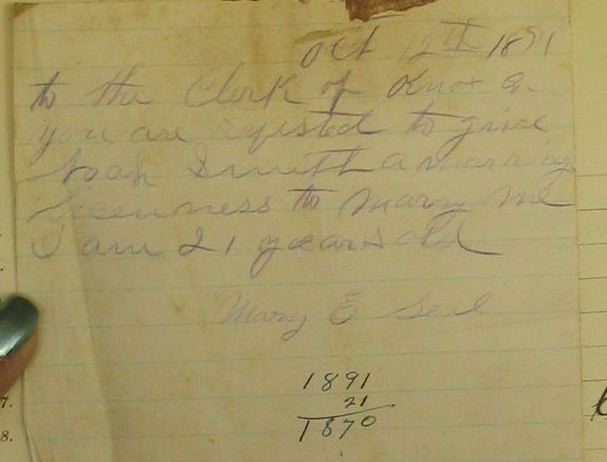 Oct 12th 1891
to the Clerk of Knox Co.
you are reqisted to give
Noah Smith a marring
licenness to mary me
I am 21 years old
Mary E Seal
1891
21
1870
7.
8.